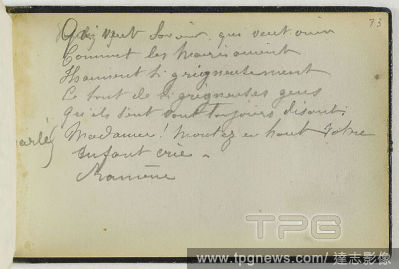 73
Qui veut savoir, qui veut ouïr
Comment les maris aiment
Ils aiment si grigneusement
Ce sont de si grigneuses gens
Qu'ils sont tout toujours disant
Madame ! montez en haut Votre
enfant crie.
Ramène
TPG
www.tpgnews.com/達志影像